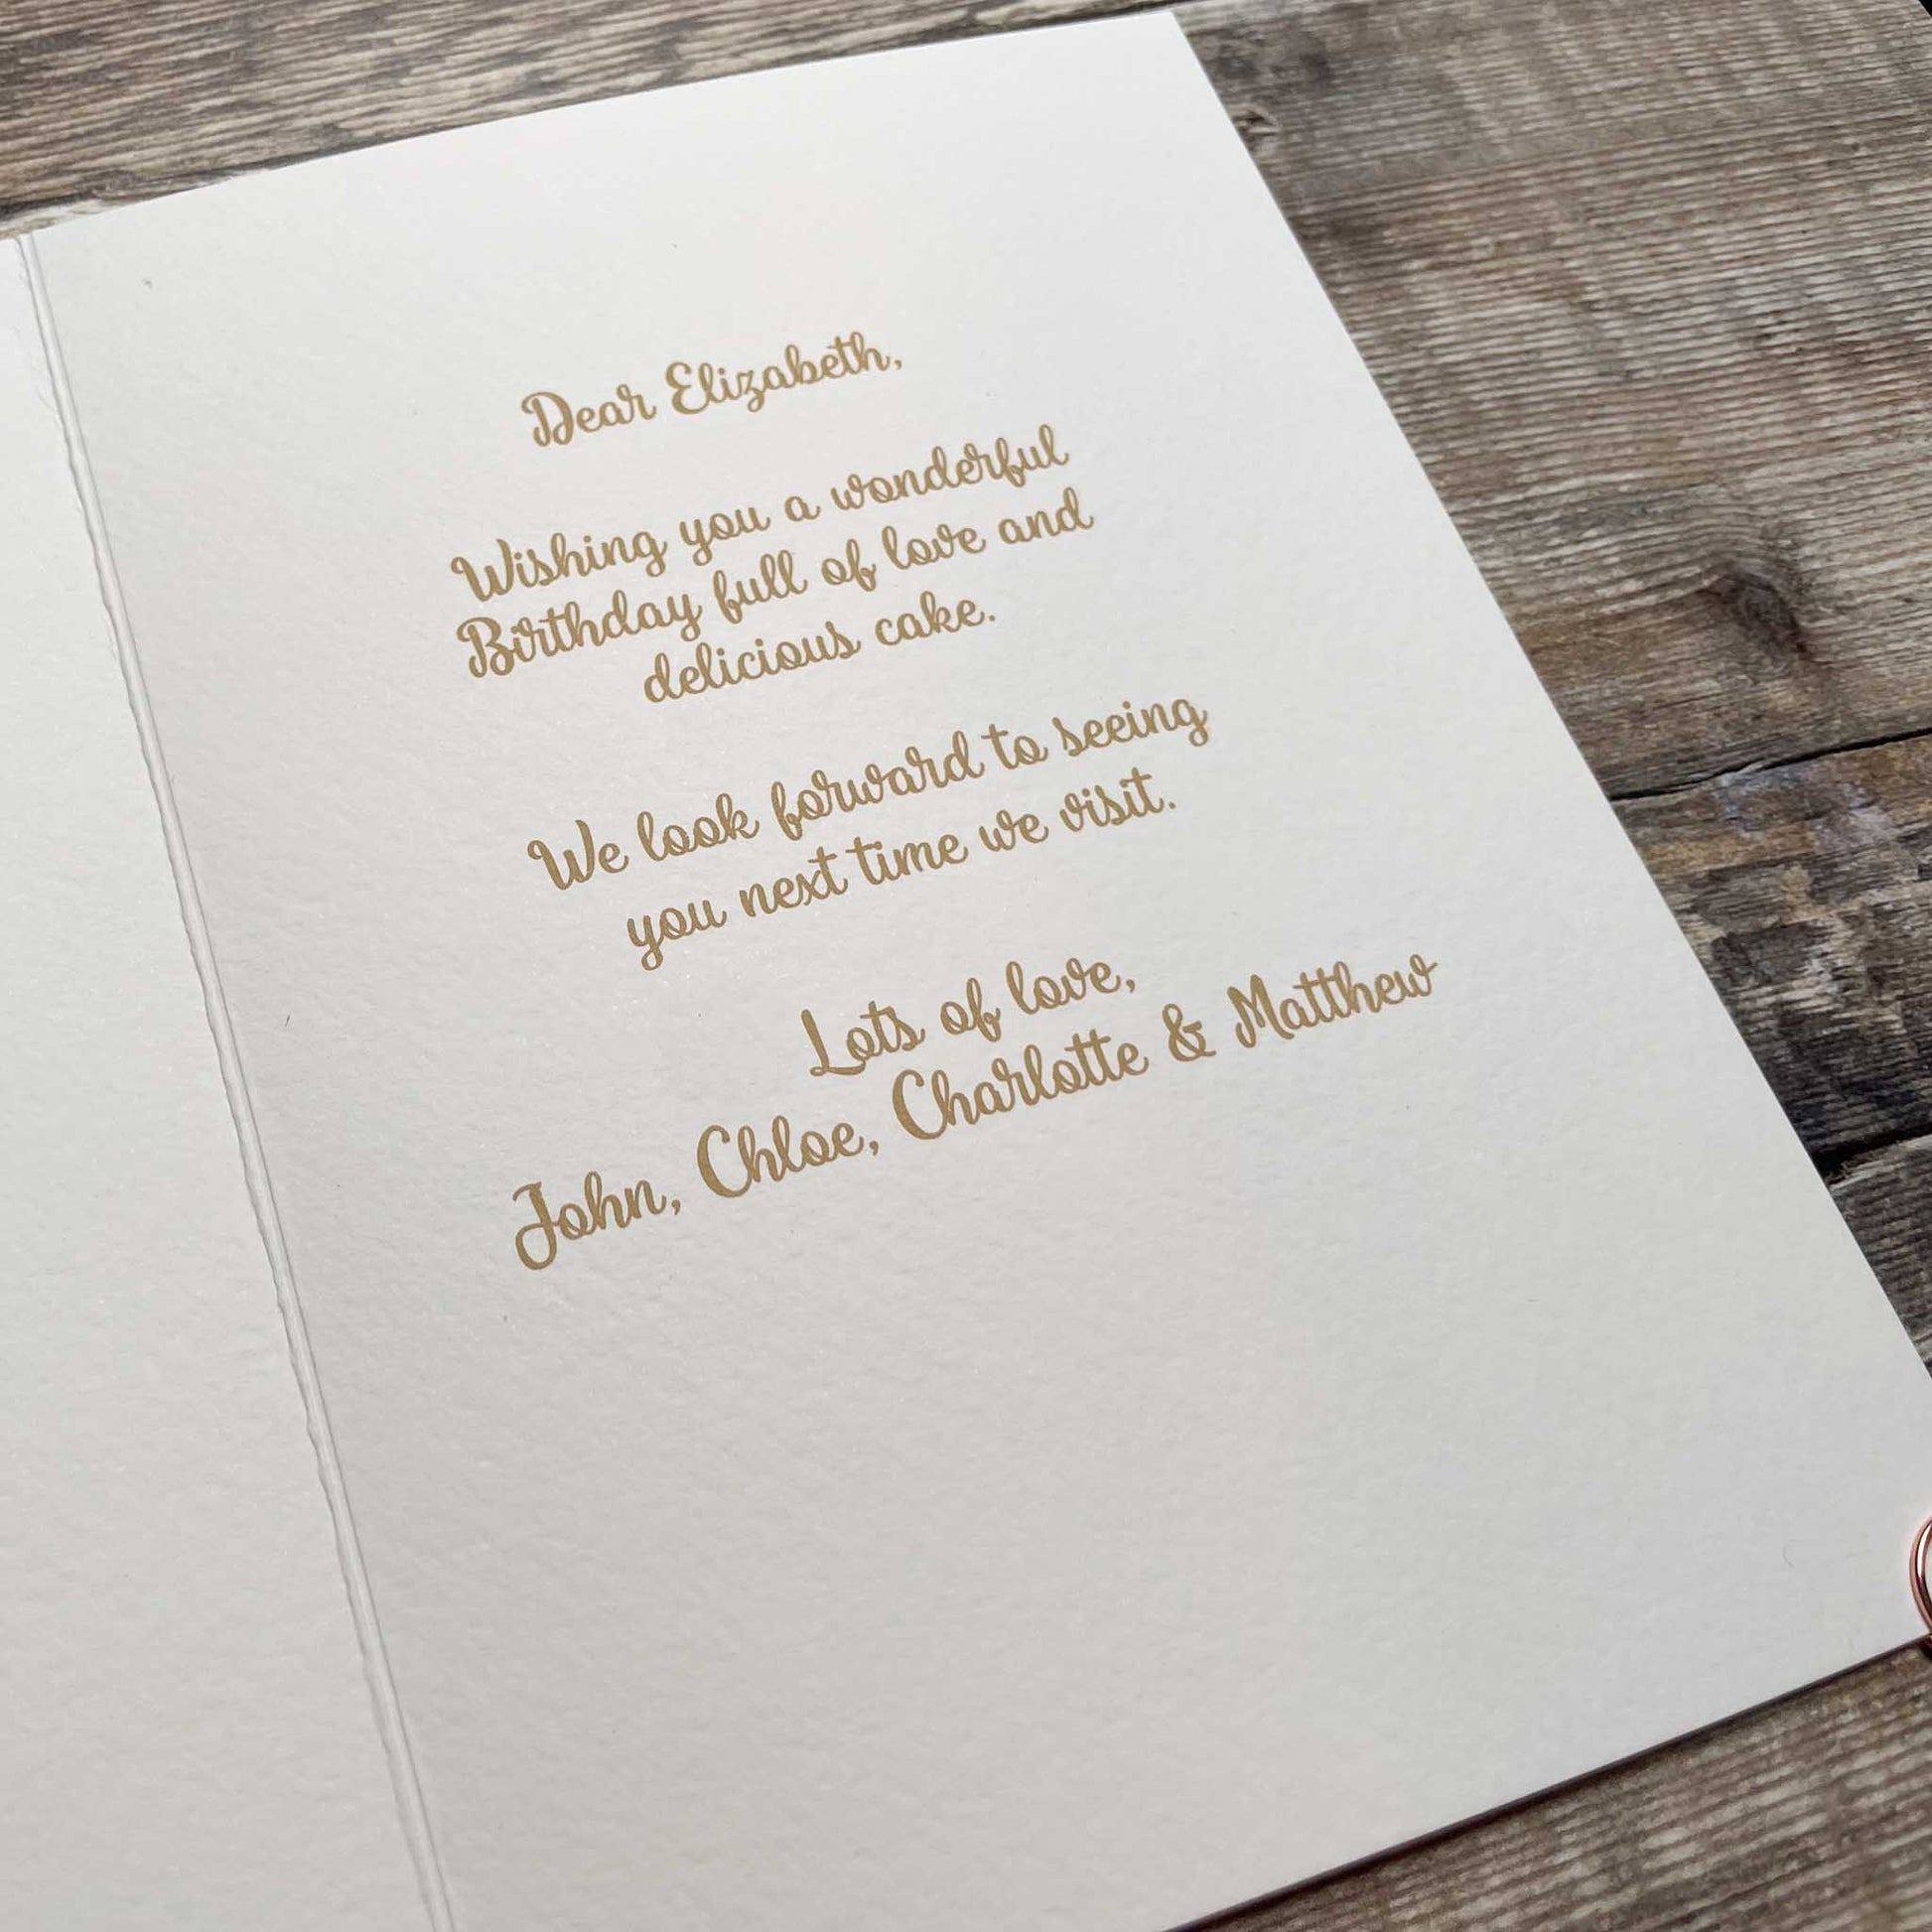 Dear Elizabeth,
Wishing you a wonderful
Birthday full of love and
delicious cake.
We look forward to seeing
you next time we visit.
Lots of love,
John, Chloe, Charlotte & Matthew